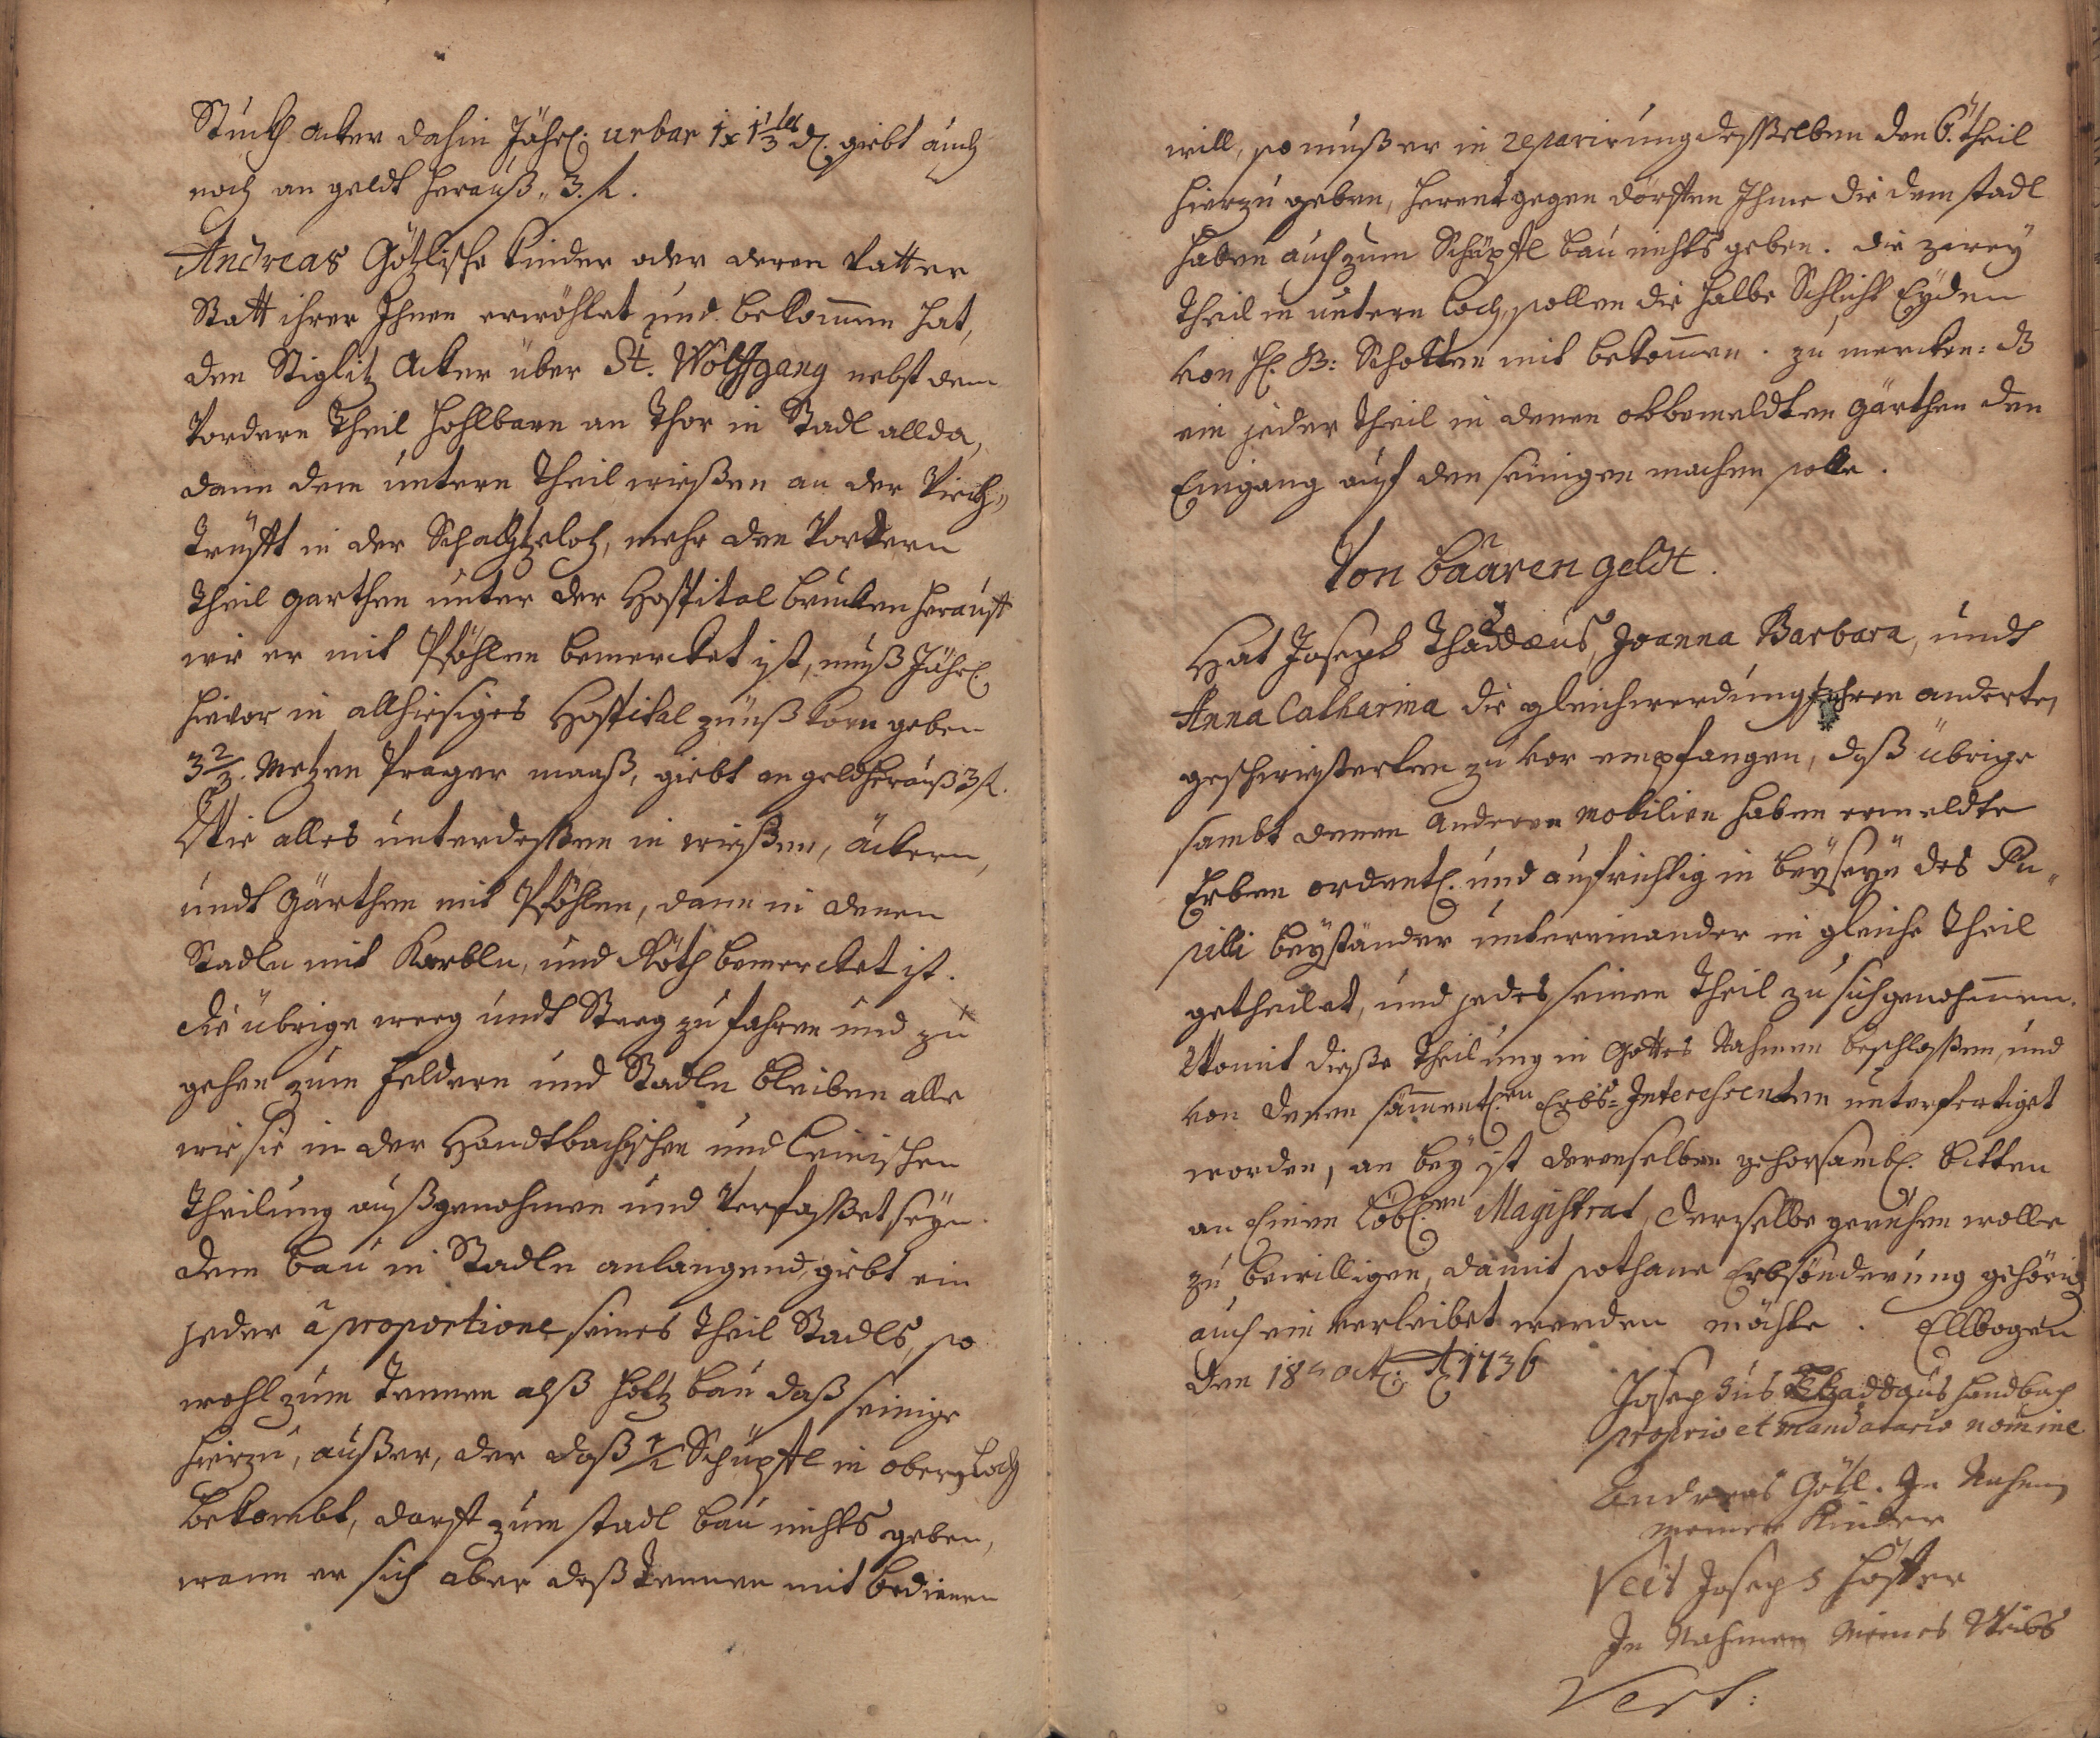 Stuckh acker dahin Jährl: urbar 1 x 1 1/3tel d. giebt auch
noch an geldt herauß„ 3. fl.
Andreas Götzlische Kinder oder deren Vatter
Statt ihrer Ihnen erwöhlet und bekommen hat,
den Stiglitz Acker über St. Wolffgang nebst dem
Vordern Theil hohlbarn an Thor in Stadl allda,
dann dem untern Theil wießen an der Viech„
Trüfft in der, mehr den Vordern
Theil garthen unter der Hospital brucken herauff
wie er mit Pföhlen bemercket ist, muß Jährl:
hievor in allhiesiges Hospital zünß Korn geben
3 2/3. Metzen Prager maaß, giebt an geld herauß 3 fl.
Wie alles unterdeßen in wießen, äckern,
undt Gärthen mit Pföhlen, dann in denen
Stadln mit Kerbln, und Röth bemercket ist.
die übrige weeg undt Steeg zu fahren und zu
gehen zum feldern und Stadln bleiben alle
wie sie in der Handtbachischen und Leinischen
Theilung außgenohmen und Verfasset seyn.
dem bau in Stadln anlangend, giebt ein
jeder â proportione seines Theil Stadls, so
wohl zum Tennen alß holtz bau daß seinige
hierzu, außer, der daß 1/2 Schüpffl in obern Loch
bekombt, darff zum stadl bau nichts geben,
wann er sich aber deß Tennen mit bedienen
will, so muß er in reparirung desselben den 6. theil
hierzu geben, herentgegen dörffen Ihme die dem stadl
haben auch zum Schüpffl bau nichts geben. die zwey
Theil in untern Loch, sollen die halbe Schlicht Eyden
von H. B: Schotten mit bekommen. zu mercken: dß
ein jeder Theil in denen obbemeldten gärthen den
Eingang auf den seinigen machen solle.
Von baaren geldt.
Hat Joseph Thaddæus, Joanna Barbara, undt
Anna Catharina die gleichwerdung ihren anderten
geschwiesterten zu vor empfangen, daß übrige
sambt denen anderen mobilien haben ermeldte
Erben ordentl. und aufrichtig in beyseyn des Pu„
pilli beyständer untereinander in gleiche Theil
getheilet, und jedes seinen Theil zu sich genohmmen.
Womit dieße Theilung in Gottes Nahmen beschloßen, und
von denen sämmentl:en Erbs-Interessenten unterfertiget
worden, an bey ist derenselben gehorsambl. bitten
an Einen Löbl:en Magistrat, derselbe geruhen wolle
zu bewilligen, damit sothane Erbsönderung gehörig
auch ein verleibet werden möchte. Ellbogen
den 18 ten oct: A 1736
Josephus Thaddæus Handbach
proprio et mandatario nomine
Andreas Götzl. In Nahmen
meiner Kinder
Veit Joseph
In Nahmen Meines Weibs
Vert: